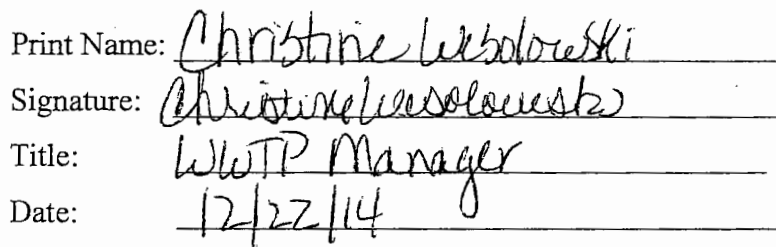 Print Name: Christine Wesolowski
Signature: Christine Wesolowski
Title: WWTP Manager
Date: 12/22/14